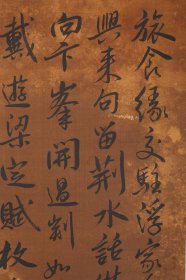 旅食緣交駐浮家
興来句留荆水話
向卞峯開過剡如
戴遊梁定賦枚